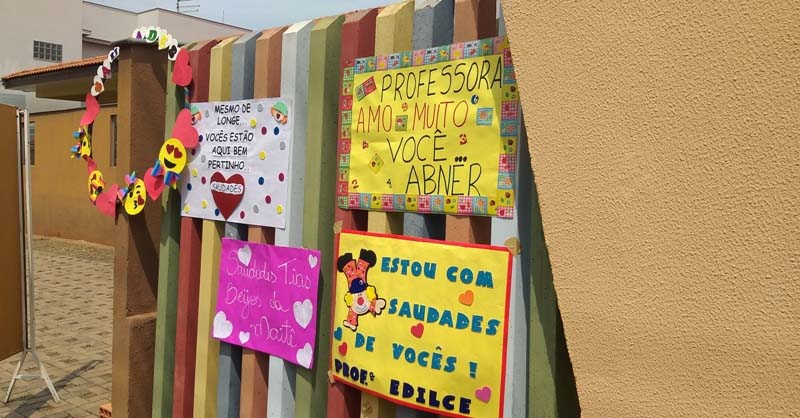 MESMO DE
LONGE...
VOCÊS ESTÃO
AQUI BEM
PERTINHO...
SAUDADES
PROFESSORA
AMO MUITO
VOCÊ...
ABNER
Saudades Tias
Beijos da
Maitê
ESTOU COM
SAUDADES
DE VOCÊS!
PROFª EDILCE